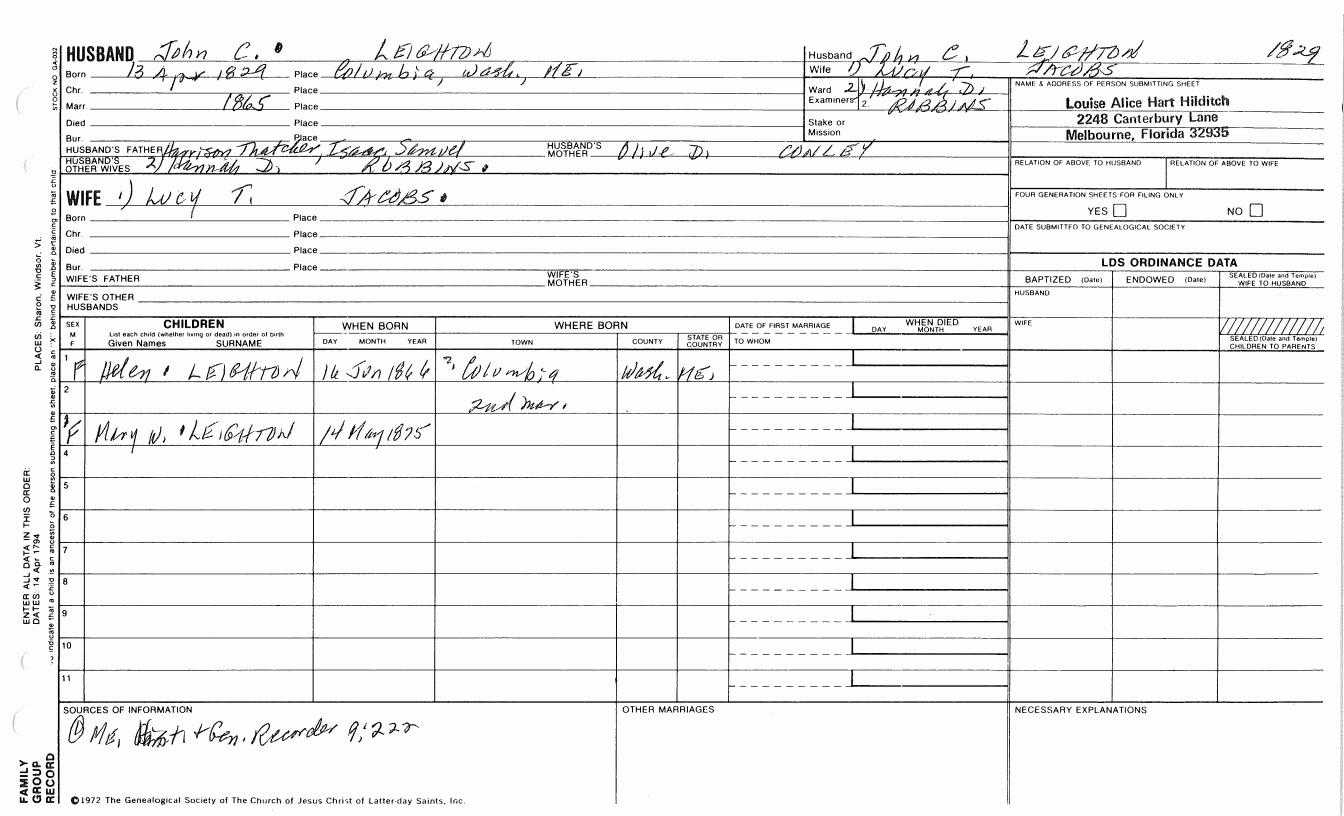 HUSBAND John C. LEIGHTON
Born 13 Apr 1829 Place Columbia, Wash., ME.
Chr. Place
Marr 1865 Place
Died Place
Bur. Place
HUSBAND'S FATHER Harrison Thatcher, Isaac, Samuel HUSBAND'S MOTHER Olive D. CONLEY
HUSBAND'S OTHER WIVES 2) Hannah D. ROBBINS.
WIFE 1) Lucy T. JACOBS.
Born Place
Chr. Place
Died Place
Bur. Place
WIFE'S FATHER WIFE'S MOTHER
WIFE'S OTHER HUSBANDS
Husband John C. LEIGHTON 1829
Wife 1) Lucy T. JACOBS
Ward 2) Hannah D.
Examiners 2. ROBBINS
Stake or Mission
NAME & ADDRESS OF PERSON SUBMITTING SHEET
Louise Alice Hart Hilditch
2248 Canterbury Lane
Melbourne, Florida 32935
RELATION OF ABOVE TO HUSBAND RELATION OF ABOVE TO WIFE
FOUR GENERATION SHEETS FOR FILING ONLY
YES NO
DATE SUBMITTED TO GENEALOGICAL SOCIETY
LDS ORDINANCE DATA
BAPTIZED (Date) ENDOWED (Date) SEALED (Date and Temple) WIFE TO HUSBAND
HUSBAND
WIFE
SEALED (Date and Temple) CHILDREN TO PARENTS
SEX M F
CHILDREN
List each child (whether living or dead) in order of birth
Given Names SURNAME
WHEN BORN
DAY MONTH YEAR
WHERE BORN
TOWN COUNTY STATE OR COUNTRY
DATE OF FIRST MARRIAGE
TO WHOM
WHEN DIED
DAY MONTH YEAR
1 F Helen LEIGHTON 16 Jun 1866 Columbia Wash. ME.
2 2nd mar.
F Mary W. LEIGHTON 14 May 1875
4
5
6
7
8
9
10
11
SOURCES OF INFORMATION
① ME, Hist + Gen. Recorder 9:222
OTHER MARRIAGES
NECESSARY EXPLANATIONS
©1972 The Genealogical Society of The Church of Jesus Christ of Latter-day Saints, Inc.
STOCK NO. GA-002
indicate that a child is an ancestor of the person submitting the sheet, place an "X" behind the number pertaining to that child.
PLACES: Sharon, Windsor, Vt.
ENTER ALL DATA IN THIS ORDER:
DATES: 14 Apr 1794
FAMILY
GROUP
RECORD